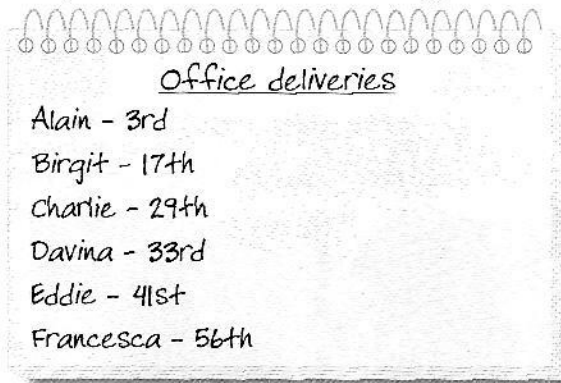 Office deliveries
Alain - 3rd
Birgit - 17th
Charlie - 29th
Davina - 33rd
Eddie - 41st
Francesca - 56th